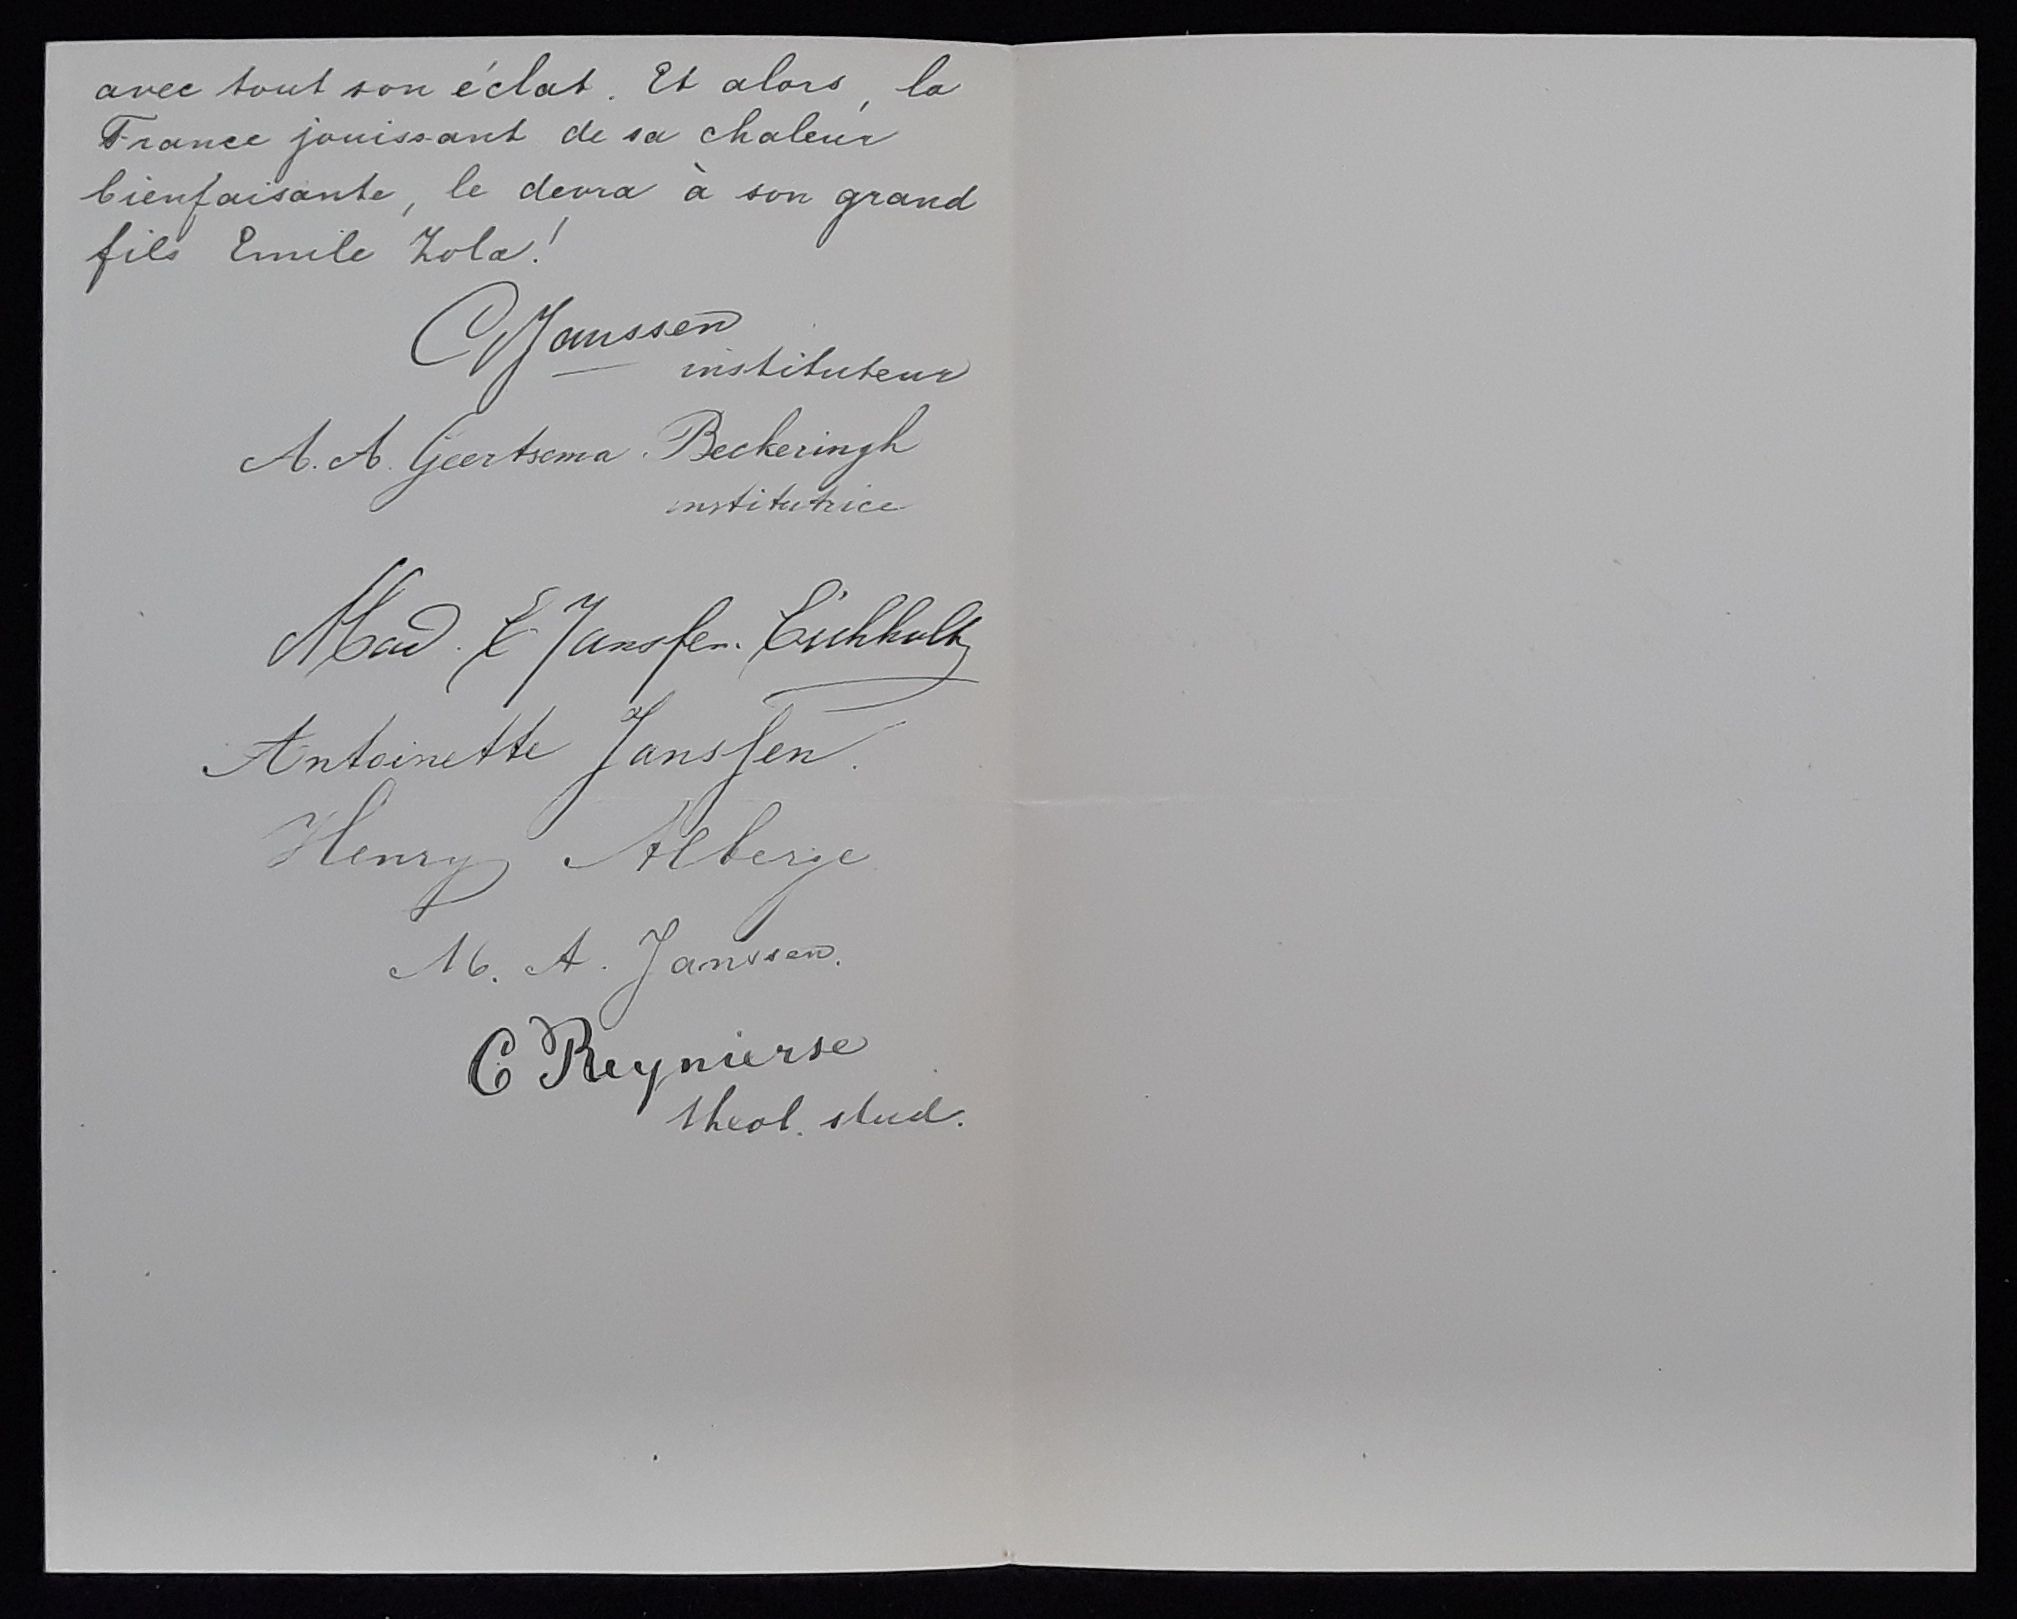 avec tout son éclat. Et alors, la
France jouissant de sa chaleur
bienfaisante, le devra à son grand
fils Emile Zola!
C Janssen
instituteur
A. A. Geertsema-Beckeringh
institutrice
Mad. E Janssen-Eichholtz
Antoinette Janssen.
Henry Alberge
M. A. Janssen.
C Reynierse
theol. stud.